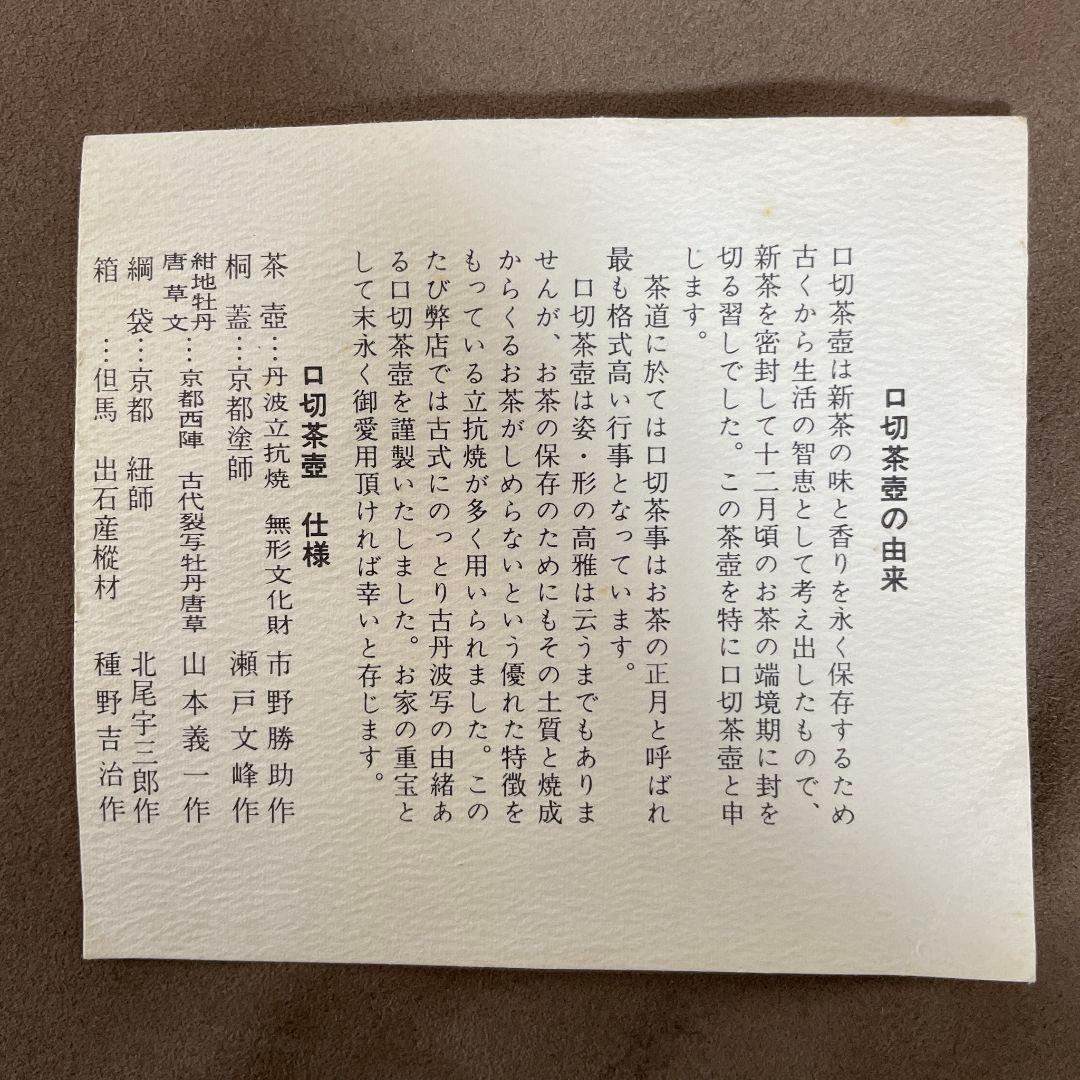 口切茶壺の由来
口切茶壺は新茶の味と香りを永く保存するため
古くから生活の智恵として考え出したもので、
新茶を密封して十二月頃のお茶の端境期に封を
切る習しでした。この茶壺を特に口切茶壺と申
じます。
茶道に於ては口切茶事はお茶の正月と呼ばれ
最も格式高い行事となっています。
口切茶壺は姿・形の高雅は云うまでもありま
せんが、お茶の保存のためにもその土質と焼成
からくるお茶がしめらないという優れた特徴を
もっている立抗焼が多く用いられました。この
たび弊店では古式にのっとり古丹波写の由緒あ
る口切茶壺を謹製いたしました。お家の重宝と
して末永く御愛用頂ければ幸いと存じます。
口切茶壺 仕様
茶壺…丹波立抗焼 無形文化財 市野勝助作
桐蓋…京都塗師 瀬戸文峰作
紺地牡丹唐草文…京都西陣 古代裂写牡丹唐草 山本義一作
綱袋…京都 紐師 北尾宇三郎作
箱…但馬 出石産樅材 種野吉治作